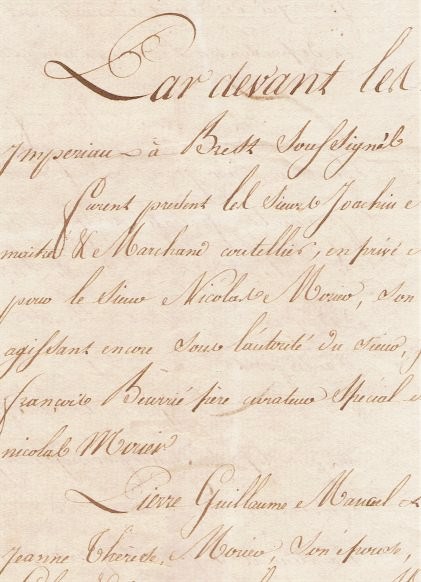 Par devant les
Imperiaux à Brest Soussignés
furent present les Sieurs Joachim
moitié & Marchand coutellier, en privé
pour le Sieur Nicolas Morier, son
agissant encore sous l'autorité du Sieur,
françois Beurrié père curateur Spécial
nicolas Morier
Pierre Guillaume Manuel
Jeanne Thérèse Morier, Son épouse,